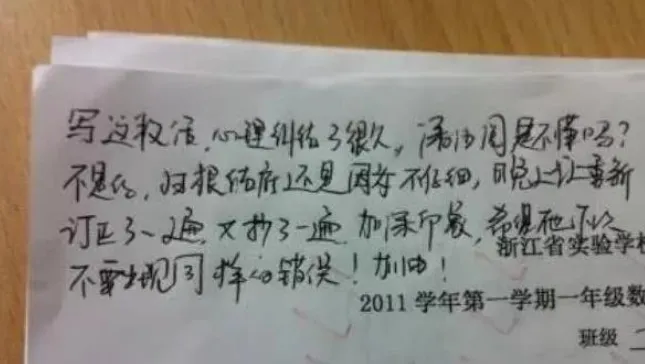 写这段话,心理纠结了很久,潘沛同是不懂吗?
不是的,归根结底还是因为不仔细,昨晚上让重新
订正了一遍,又抄了一遍,加深印象,希望他下次
不要出现同样的错误!加油!
浙江省实验学校
2011学年第一学期一年级数
班级 二